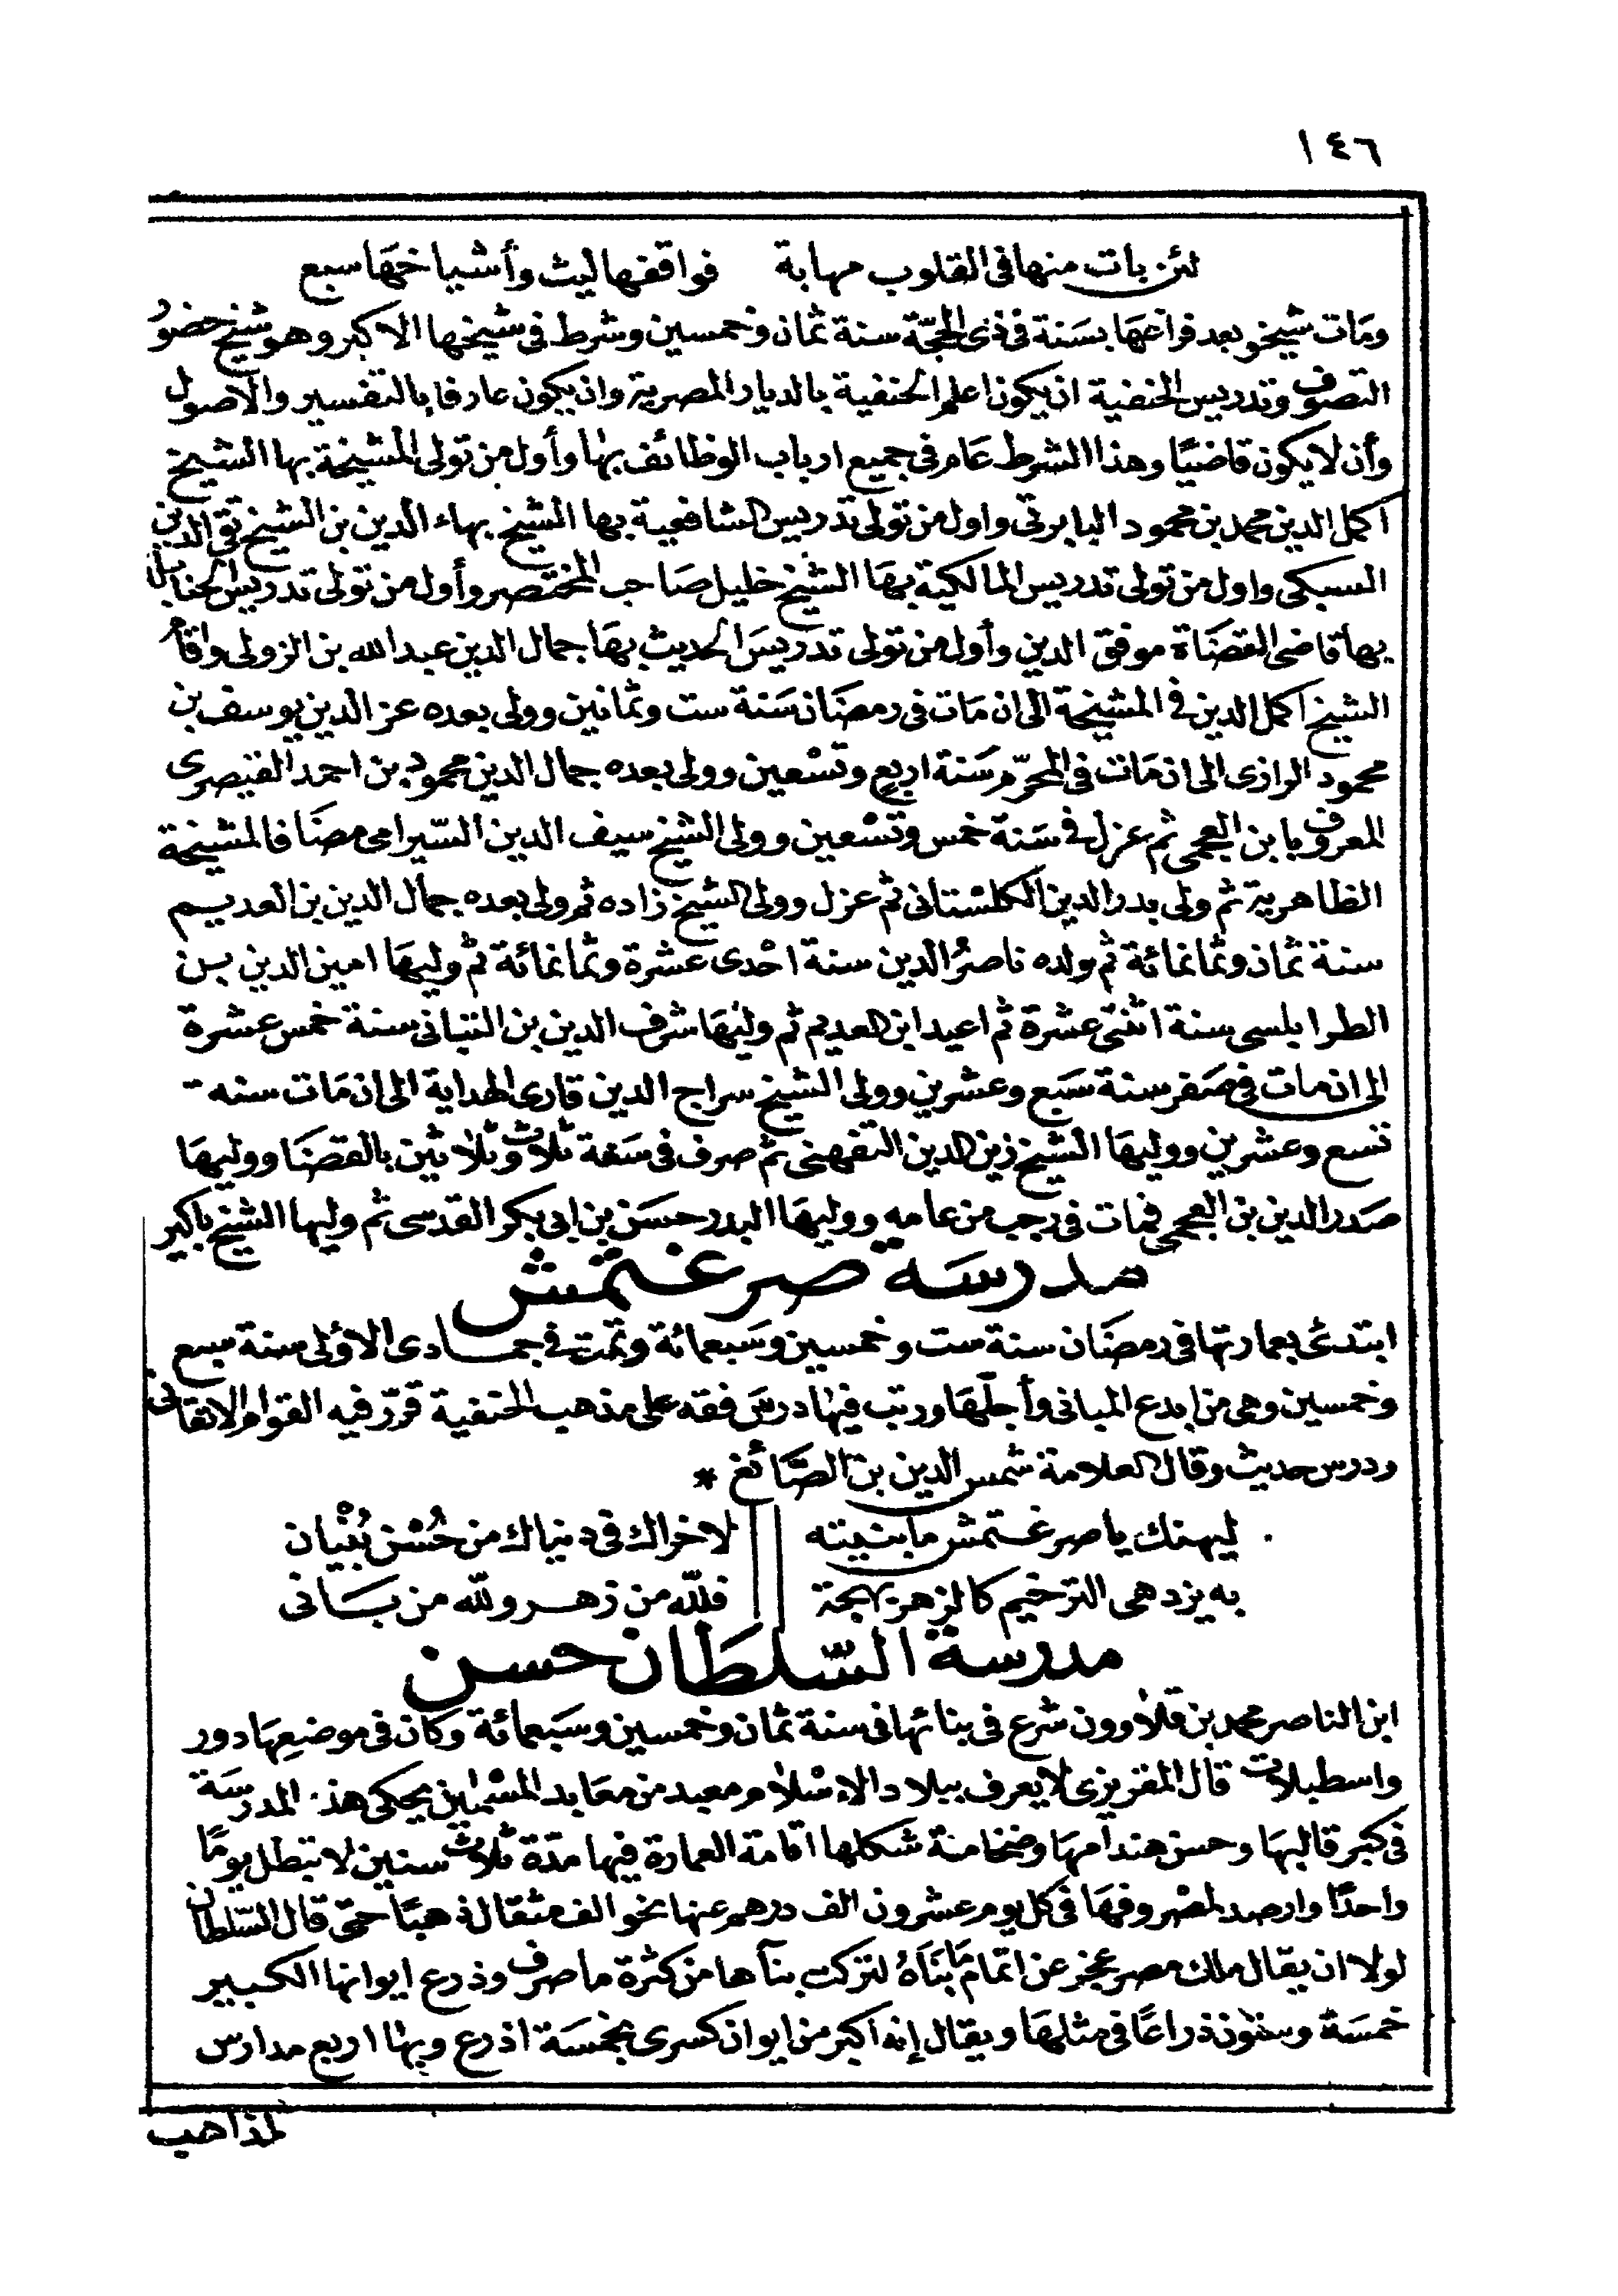 ١٤٦
لئن بات منها فى القلوب مهابة فواقفها ليث وأشياخها سبع
ومَات شيخو بعد فراغهَا بسَنة فى ذى الحجّة سنة ثمان وخمسين وشرط فى شيخها الاكبر وهو شيخ حضورُ
التصوف وتدريس الحنفية ان يكون اعلم الحنفية بالديار المصرية وان يكون عارفا بالتفسير والاصول
وأن لا يكون قاضيًا وهذا الشرط عَام فى جميع ارباب الوظائف بهٰا وأول من تولى المشيخة بها الشيخ
اكمل الدين محمد بن محمود البابرتى واول من تولى تدريس الشافعية بها الشيخ بهاء الدين بن الشيخ تقى الدين
السبكى واول من تولى تدريس المالكية بهَا الشيخ خليل صَاحب المختصر وأول من تولى تدريس الحنابلة
بها قاضى القضَاة موفق الدين وأول من تولى تدريسَ الحديث بهَا جمال الدين عبد الله بن الزولى واقام
الشيخ اكمل الدين فى المشيخة الى ان مَات فى رمضَان سَنة ست وثمانين وولى بعده عز الدين يوسف بن
محمود الرازى الى ان مَات فى المحرّم سَنة اربع وتسْعين وولى بعده جمال الدين محمود بن احمد القيصرى
المعروف بابن العجمى ثم عزل فى سَنة خمس وتسْعين وولى الشيخ سيف الدين السّيرامى مضَافا لمشيخة
الظاهرية ثم ولى بدر الدين الكلسْتانى ثم عزل وولى الشيخ زاده ثم ولى بعده جمال الدين بن العديم
سنة ثمان وثمانمائة ثم ولده ناصرُ الدين سنة احْدى عشرة وثمانمائة ثم وليهَا امين الدين بن
الطرابلسى سنة اثنتى عشرة ثم اعيد ابن العديم ثم وليهَا شرف الدين بن التبانى سنة خمس عشرة
الى ان مات فى صَفر سنة سَبع وعشرين وولى الشيخ سراج الدين قارى الهداية الى ان مَات سنه
تسع وعشرين ووليهَا الشيخ زين الدين التفهنى ثم صرف فى سَنة ثلاث وثلاثين بالقضَا ووليهَا
صَدر الدين بن العجمى فمات فى رجب من عامه ووليهَا البدر حسَن بن ابى بكر القدسى ثم وليها الشيخ باكير
مدرسَة صرغتمش
ابتدئ بعمارتها فى رمضَان سنة ست وخمسين وسَبعمائة وتمت فى جمادى الاوْلى سنة سبع
وخمسين وهى من ابدع المبانى وأجلّهَا ورتب فيهٰا درسَ فقه على مذهب الحنفية قرّر فيه القوام الاتقانى
ودرس حديث وقال العلامة شمس الدين بن الصَّائغ *
ليهنك يا صرغتمش ما بنيته لاخراك فى دنياك من حُسْن بُنْيان
به يزدهى الترخيم كالزهر بهجة فللّه من زهر وللّه من بَانى
مدرسة السّلطان حسن
ابن الناصر محمد بن قلاوون شرع فى بنائها فى سنة ثمان وخمسين وسَبعمائة وكان فى موضعِهَا دور
واسطبلات قال المقريزى لا يعرف ببلاد الاسْلام معبد من معَابد المسْلمين يحكى هذه المدرسَة
فى كبر قالبهَا وحسن هندامهَا وضخامة شكلها اقامة العمارة فيها مدّة ثلاث سنين لا تبطل يومًا
واحدًا وارصد لمصْروفهَا فى كل يوم عشرون الف درهم عنها نحو الف مثقال ذهبًا حتى قال السّلطان
لولا ان يقال ملك مصر عجز عن اتمام مَا بنَاهُ لتركت بنآها من كثرة ما صرف وذرع ايوانها الكبير
خمسَة وستون ذراعًا فى مثلهَا ويقال إنه اكبر من ايوان كسرى بخمسَة اذرع وبهٰا اربع مدارس
لمذاهب